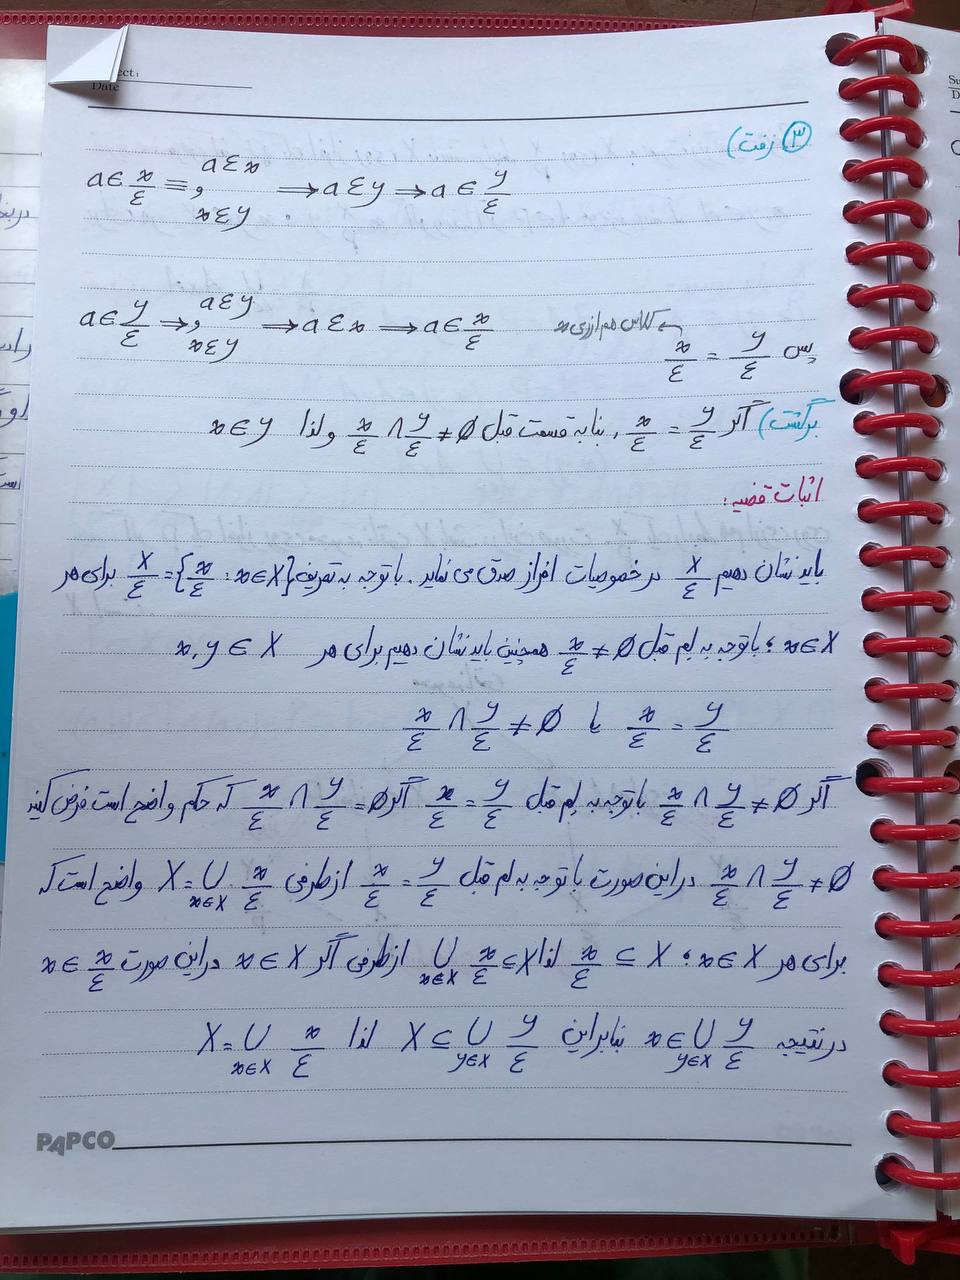 Date
۳ رفت)
a∈x/ℰ ≡ , aℰx xℰy ⟹ aℰy ⟹ a∈y/ℰ
a∈y/ℰ ⟹ , aℰy xℰy ⟹ aℰx ⟹ a∈x/ℰ
کلاس هم ارزی x
پس y/ℰ = x/ℰ
برگشت) اگر y/ℰ = x/ℰ ، بنا به قسمت قبل x/ℰ ∩ y/ℰ ≠ ∅ و لذا xℰy
اثبات قضیه:
باید نشان دهیم X/ℰ در خصوصیات افراز صدق می نماید. با توجه به تعریف X/ℰ = {x/ℰ : x∈X} برای هر
x∈X ؛ با توجه به لم قبل x/ℰ ≠ ∅ همچنین باید نشان دهیم برای هر x,y ∈ X
y/ℰ = x/ℰ یا x/ℰ ∩ y/ℰ ≠ ∅
اگر x/ℰ ∩ y/ℰ ≠ ∅ با توجه به لم قبل x/ℰ = y/ℰ اگر x/ℰ ∩ y/ℰ = ∅ که حکم واضح است فرض کنید
x/ℰ ∩ y/ℰ ≠ ∅ در این صورت با توجه به لم قبل x/ℰ = y/ℰ از طرفی X = ∪x∈X x/ℰ واضح است که
برای هر x∈X ؛ x/ℰ ⊆ X لذا ∪x∈X x/ℰ ⊆ X از طرفی اگر x∈X در این صورت x∈x/ℰ
در نتیجه x∈∪y∈X y/ℰ بنابراین X⊆∪y∈X y/ℰ لذا X = ∪x∈X x/ℰ
PAPCO